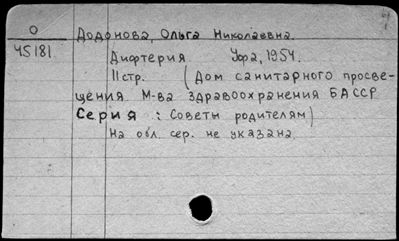 О Додонова, Ольга Николаевна.
45181. Дифтерия Уфа, 1954.
11стр. (Дом санитарного просве-
щения М-ва здравоохранения БАССР
Серия : Советы родителям)
На обл. сер. не указана